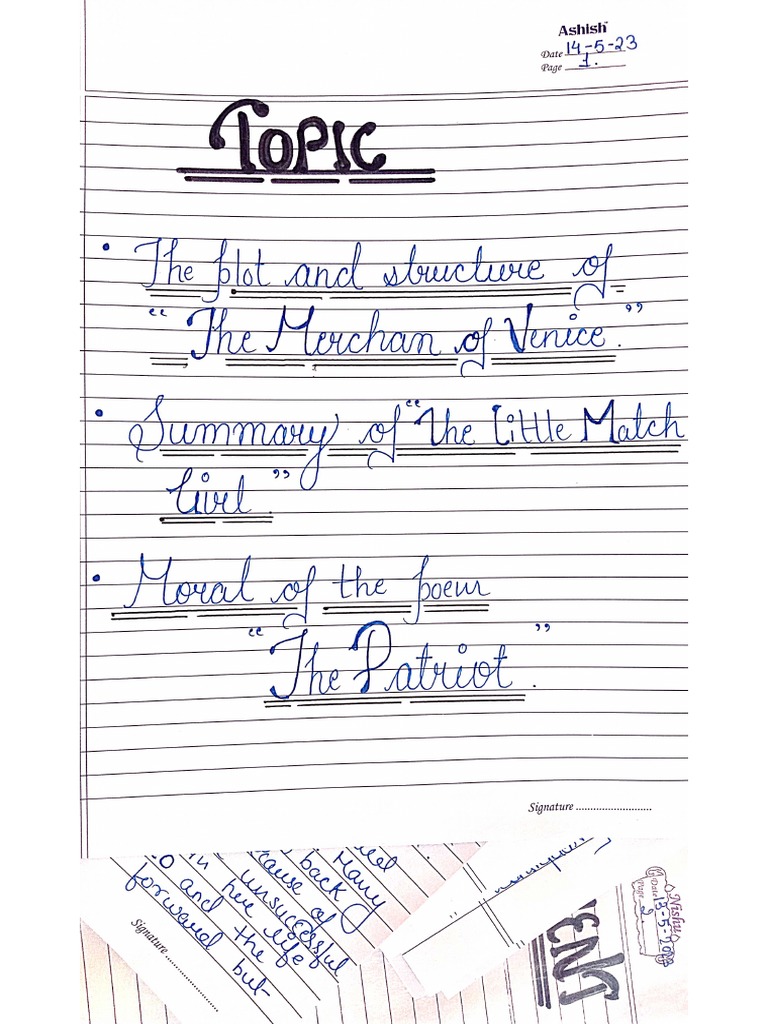 Ashish
Date 14-5-23
Page 1.
TOPIC
• The plot and structure of
"The Merchan of Venice."
• Summary of "The Little Match
Girl"
• Moral of the poem
"The Patriot".
Signature
back
Many
cause of
unsuccessful
in her life
and the
forward but
Signature
ENT
Nishu
Date 13-5-20
Page 2